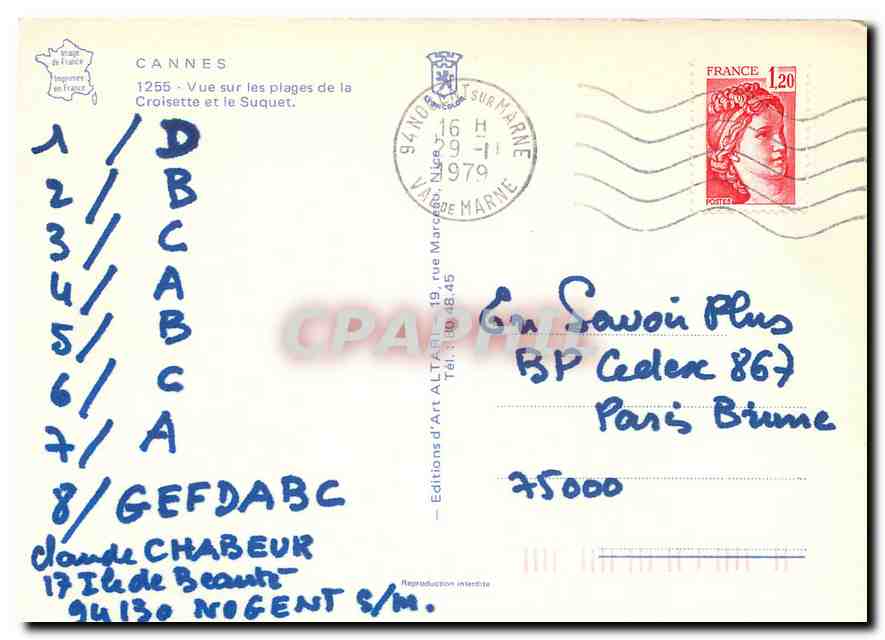 Image
de France
Imprimée
en France
CANNES
1255 - Vue sur les plages de la
Croisette et le Suquet.
1 / D
2 / B
3 / C
4 / A
5 / B
6 / C
7 / A
8 / GEFDABC
Claude CHABEUR
17 Ile de Beauté
94130 NOGENT S/M.
— Editions d'Art ALTARI 19, rue Marceau, Nice
Tél. 80.48.45
Reproduction interdite
94 NOGENT SUR MARNE
16 H
29 - 11
1979
VAL DE MARNE
FRANCE 1,20
POSTES
CPAPHIL
En Savoir Plus
BP Cedex 867
Paris Brune
75000